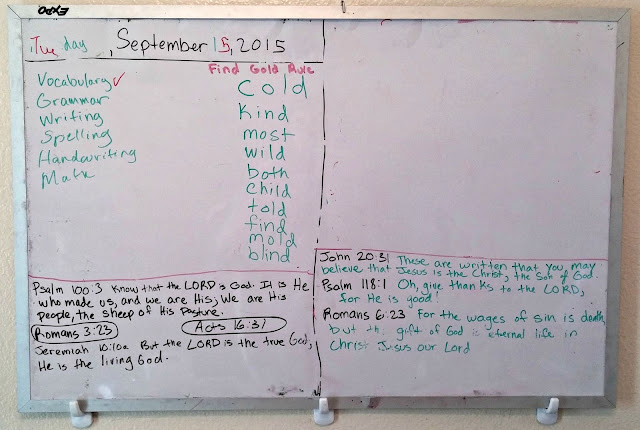 EXPO
Tuesday, September 15, 2015
Vocabulary ✓
Grammar
Writing
Spelling
Handwriting
Math
Find Gold Rule
Cold
Kind
most
wild
both
child
told
find
mold
blind
Psalm 100:3 Know that the LORD is God. It is He
who made us, and we are His; we are His
people, the sheep of His Pasture.
Romans 3:23 Acts 16:31
Jeremiah 10:10a But the LORD is the true God;
He is the living God.
John 20:31 These are written that you may
believe that Jesus is the Christ, the Son of God.
Psalm 118:1 Oh, give thanks to the LORD,
for He is good!
Romans 6:23 For the wages of sin is death
but the gift of God is eternal life in
Christ Jesus our Lord